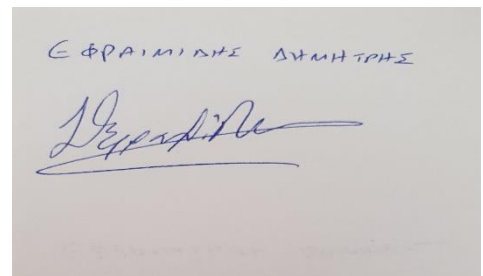 ΕΦΡΑΙΜΙΔΗΣ ΔΗΜΗΤΡΗΣ